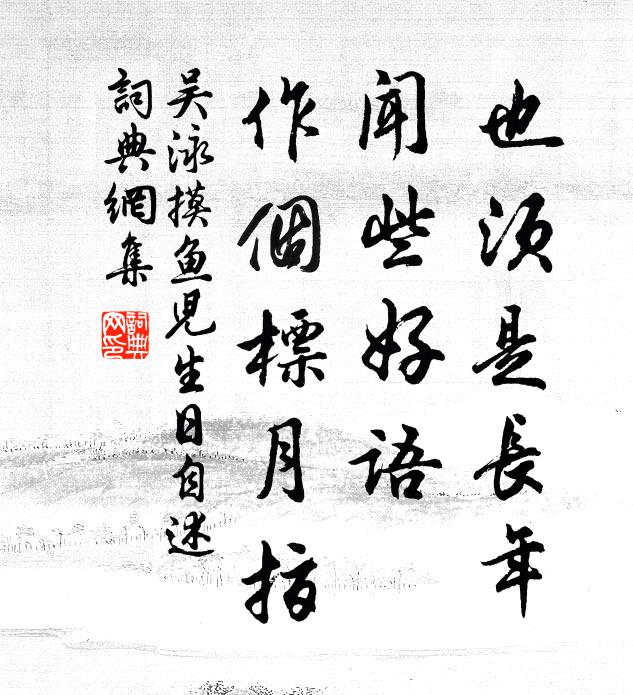 也須是長年
聞些好語
作個標月指
吳泳摸魚兒生日自述
詞典網集
詞典
网印